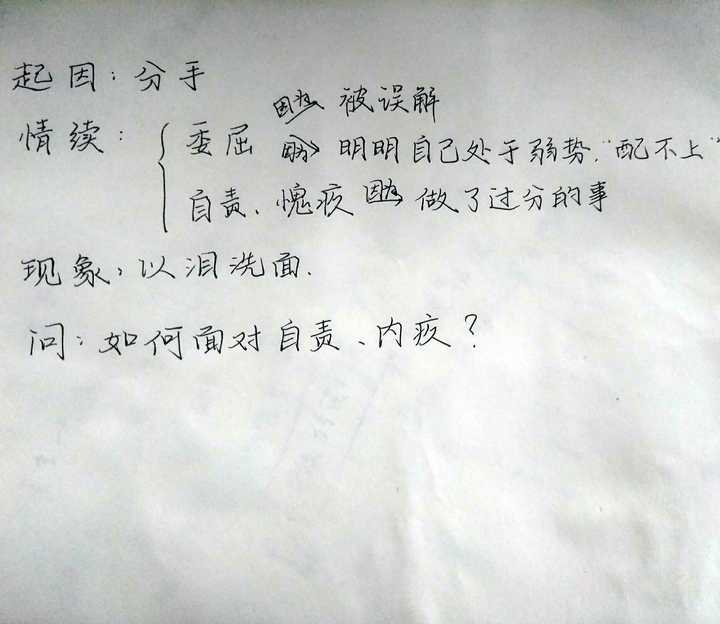 起因：分手
因为 被误解
情续：委屈 因为 明明自己处于弱势，“配不上”
自责、愧疚 因为 做了过分的事
现象：以泪洗面.
问：如何面对自责、内疚？